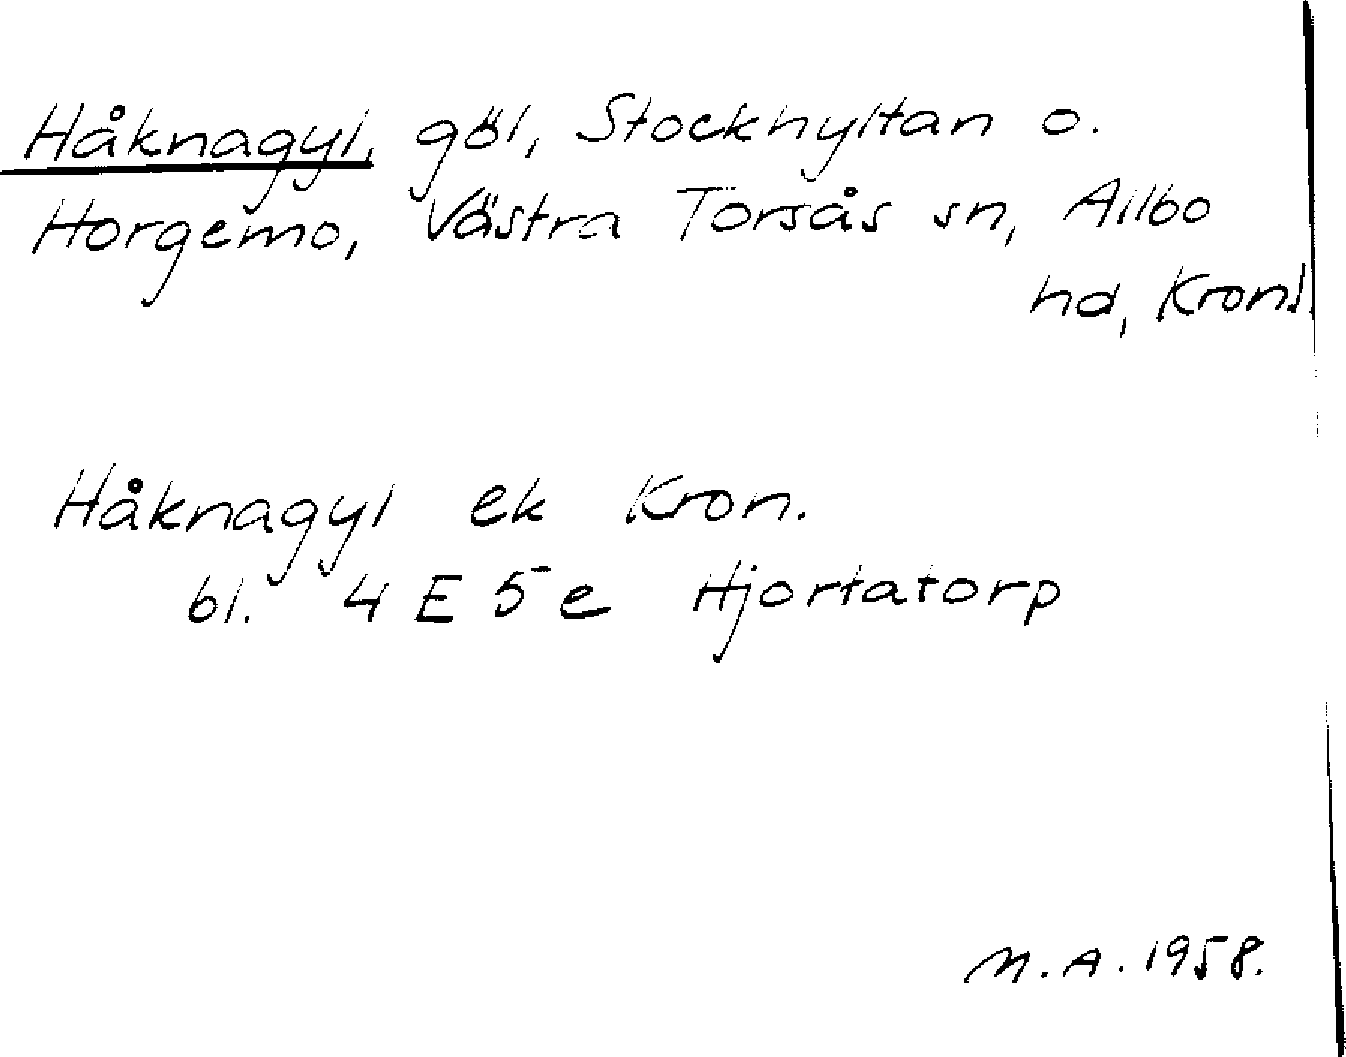 Håknagyl, göl, Stockhyltan o.
Horgemo, Västra Torsås sn, Allbo
hd, Kronl.
Håknagyl ek Kron.
bl. 4 E 5 e Hjortatorp
M.A. 1958.